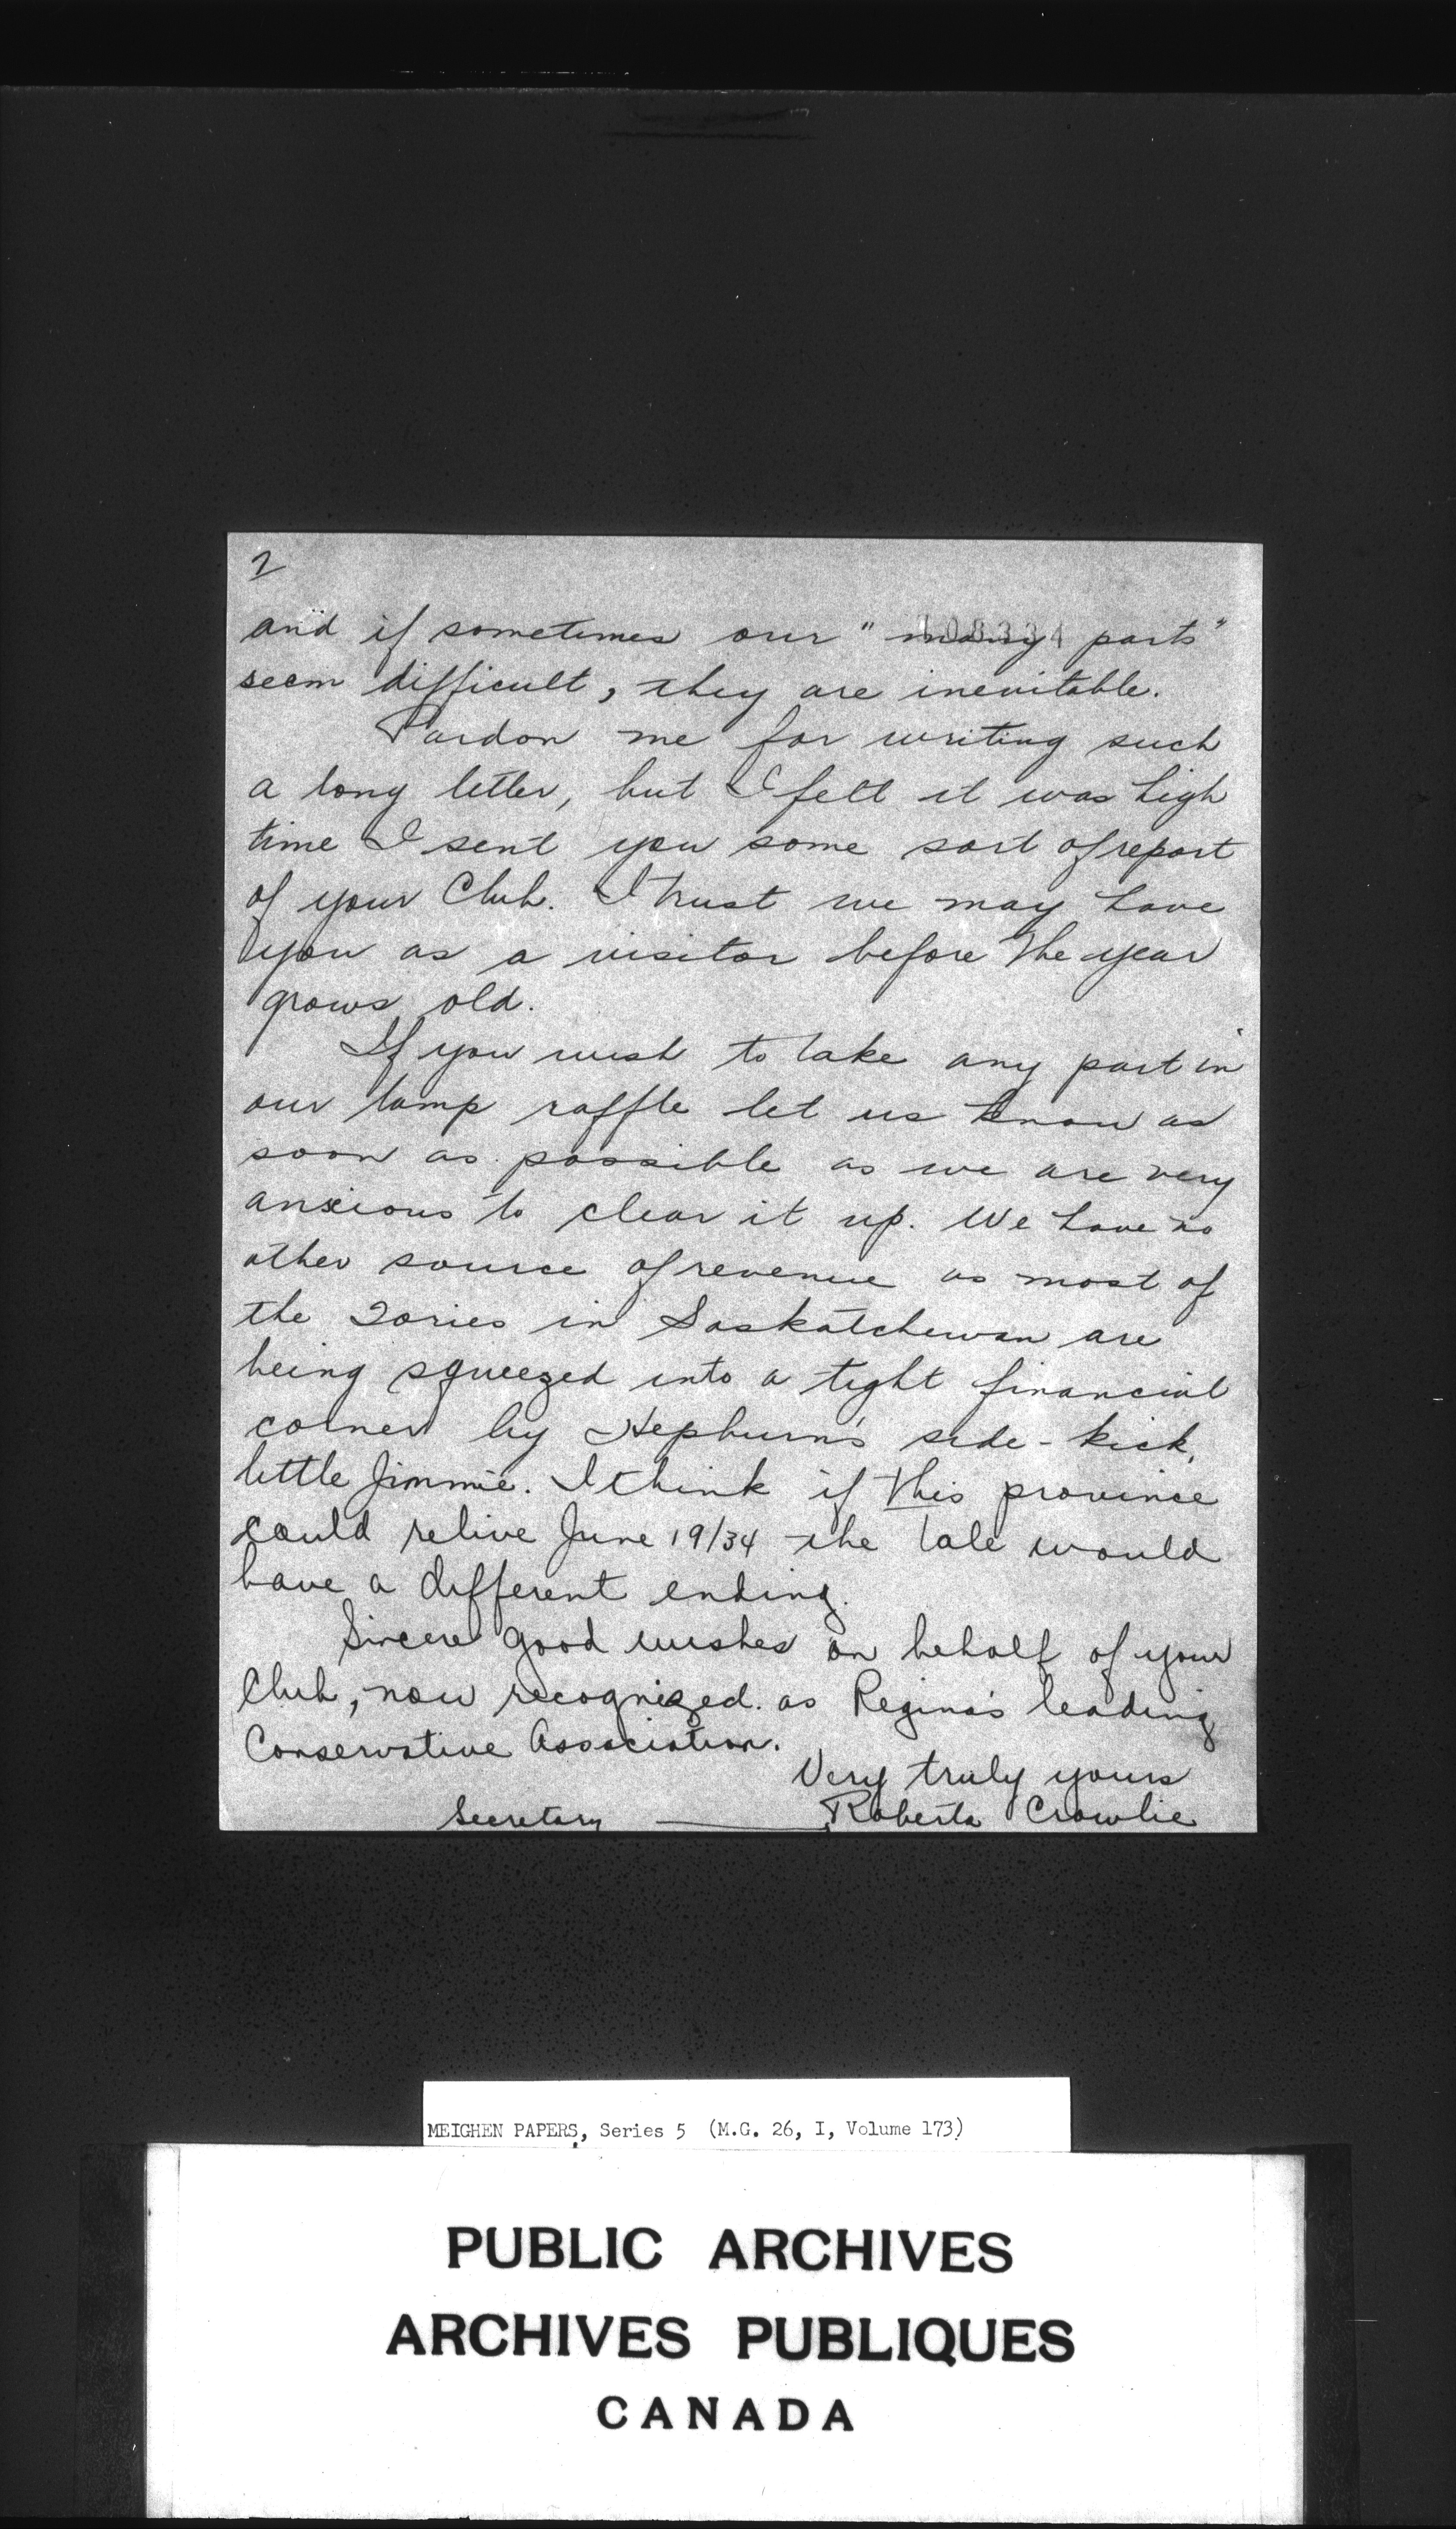 2
108334
and if sometimes our "many parts"
seem difficult, they are inevitable.
Pardon me for writing such
a long letter, but I felt it was high
time I sent you some sort of report
of your Club. I trust we may have
you as a visitor before the year
grows old.
If you wish to take any part in
our lamp raffle let us know as
soon as possible as we are very
anxious to clear it up. We have no
other source of revenue as most of
the Tories in Saskatchewan are
being squeezed into a tight financial
corner by Hepburn's side-kick,
little Jimmie. I think if this province
could relive June 19/34 the tale would
have a different ending.
Sincere good wishes on behalf of your
Club, now recognized as Regina's leading
Conservative Association.
Very truly yours
Secretary — Roberta Crowlie
MEIGHEN PAPERS, Series 5 (M.G. 26, I, Volume 173)
PUBLIC ARCHIVES
ARCHIVES PUBLIQUES
CANADA